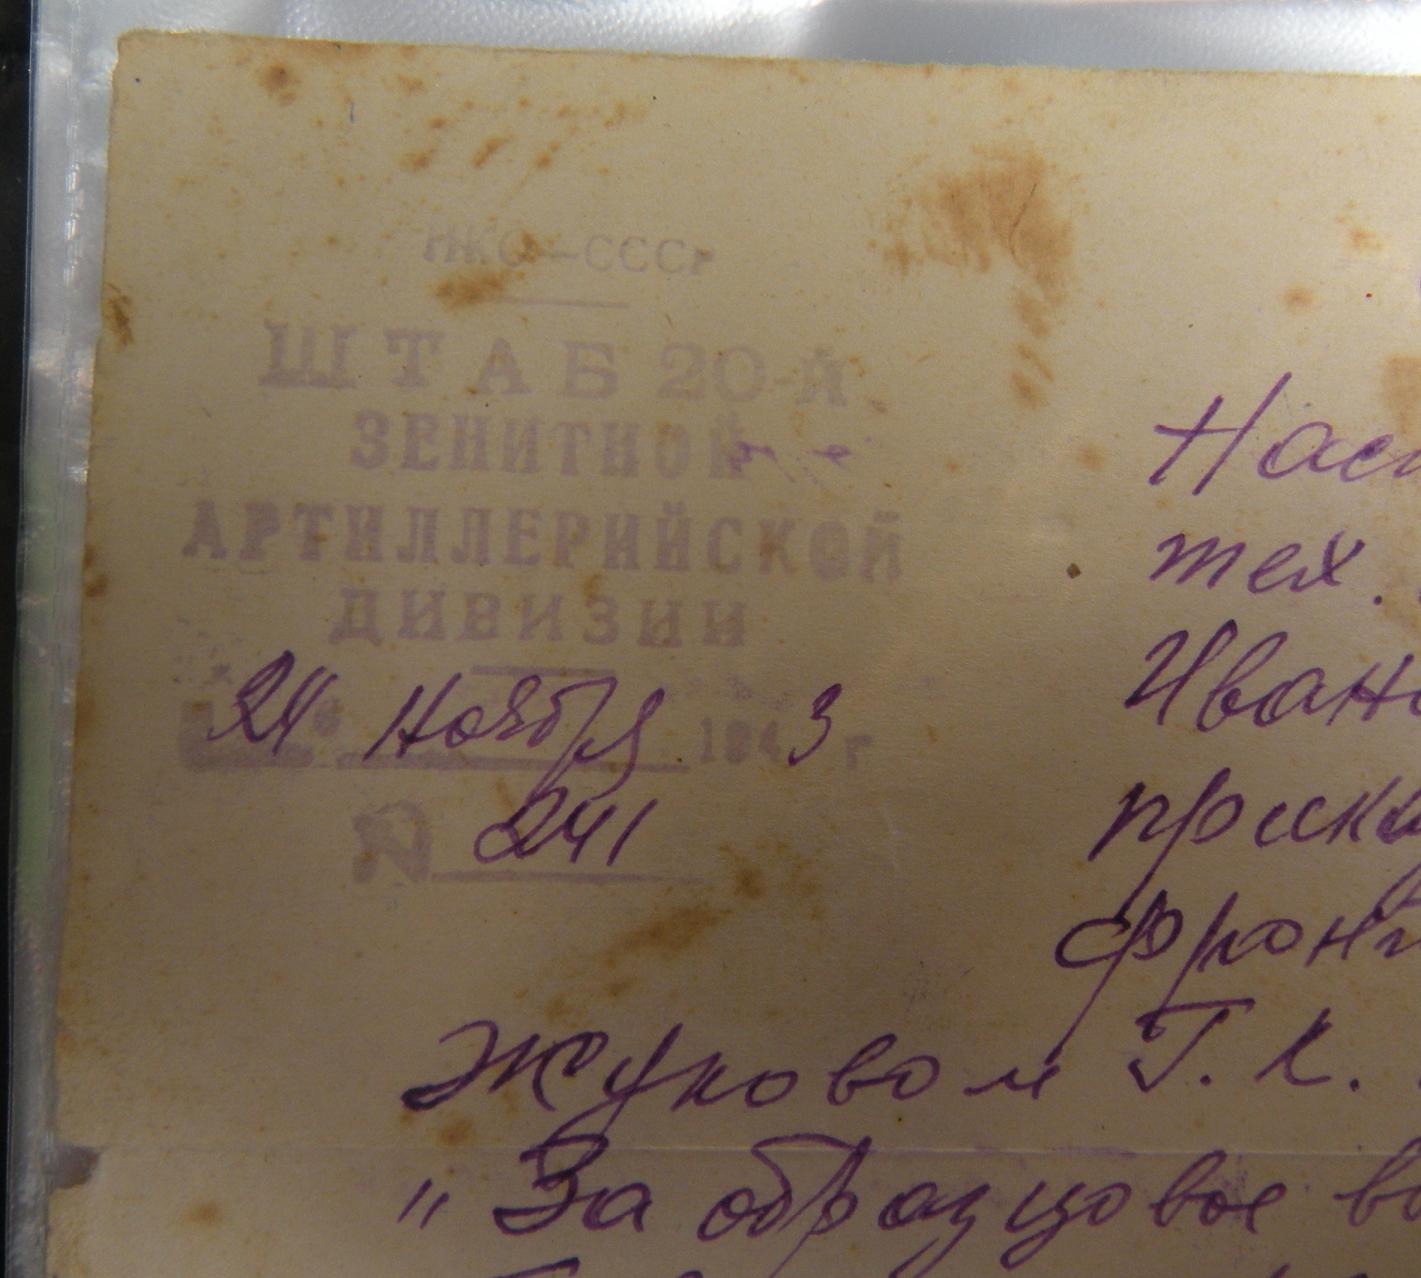 НКО-СССР
ШТАБ 20-й
ЗЕНИТНОЙ
АРТИЛЛЕРИЙСКОЙ
ДИВИЗИИ
24 Ноября 1943 г
№ 241
тех.
Жуковом Г. К.
„За образцовое